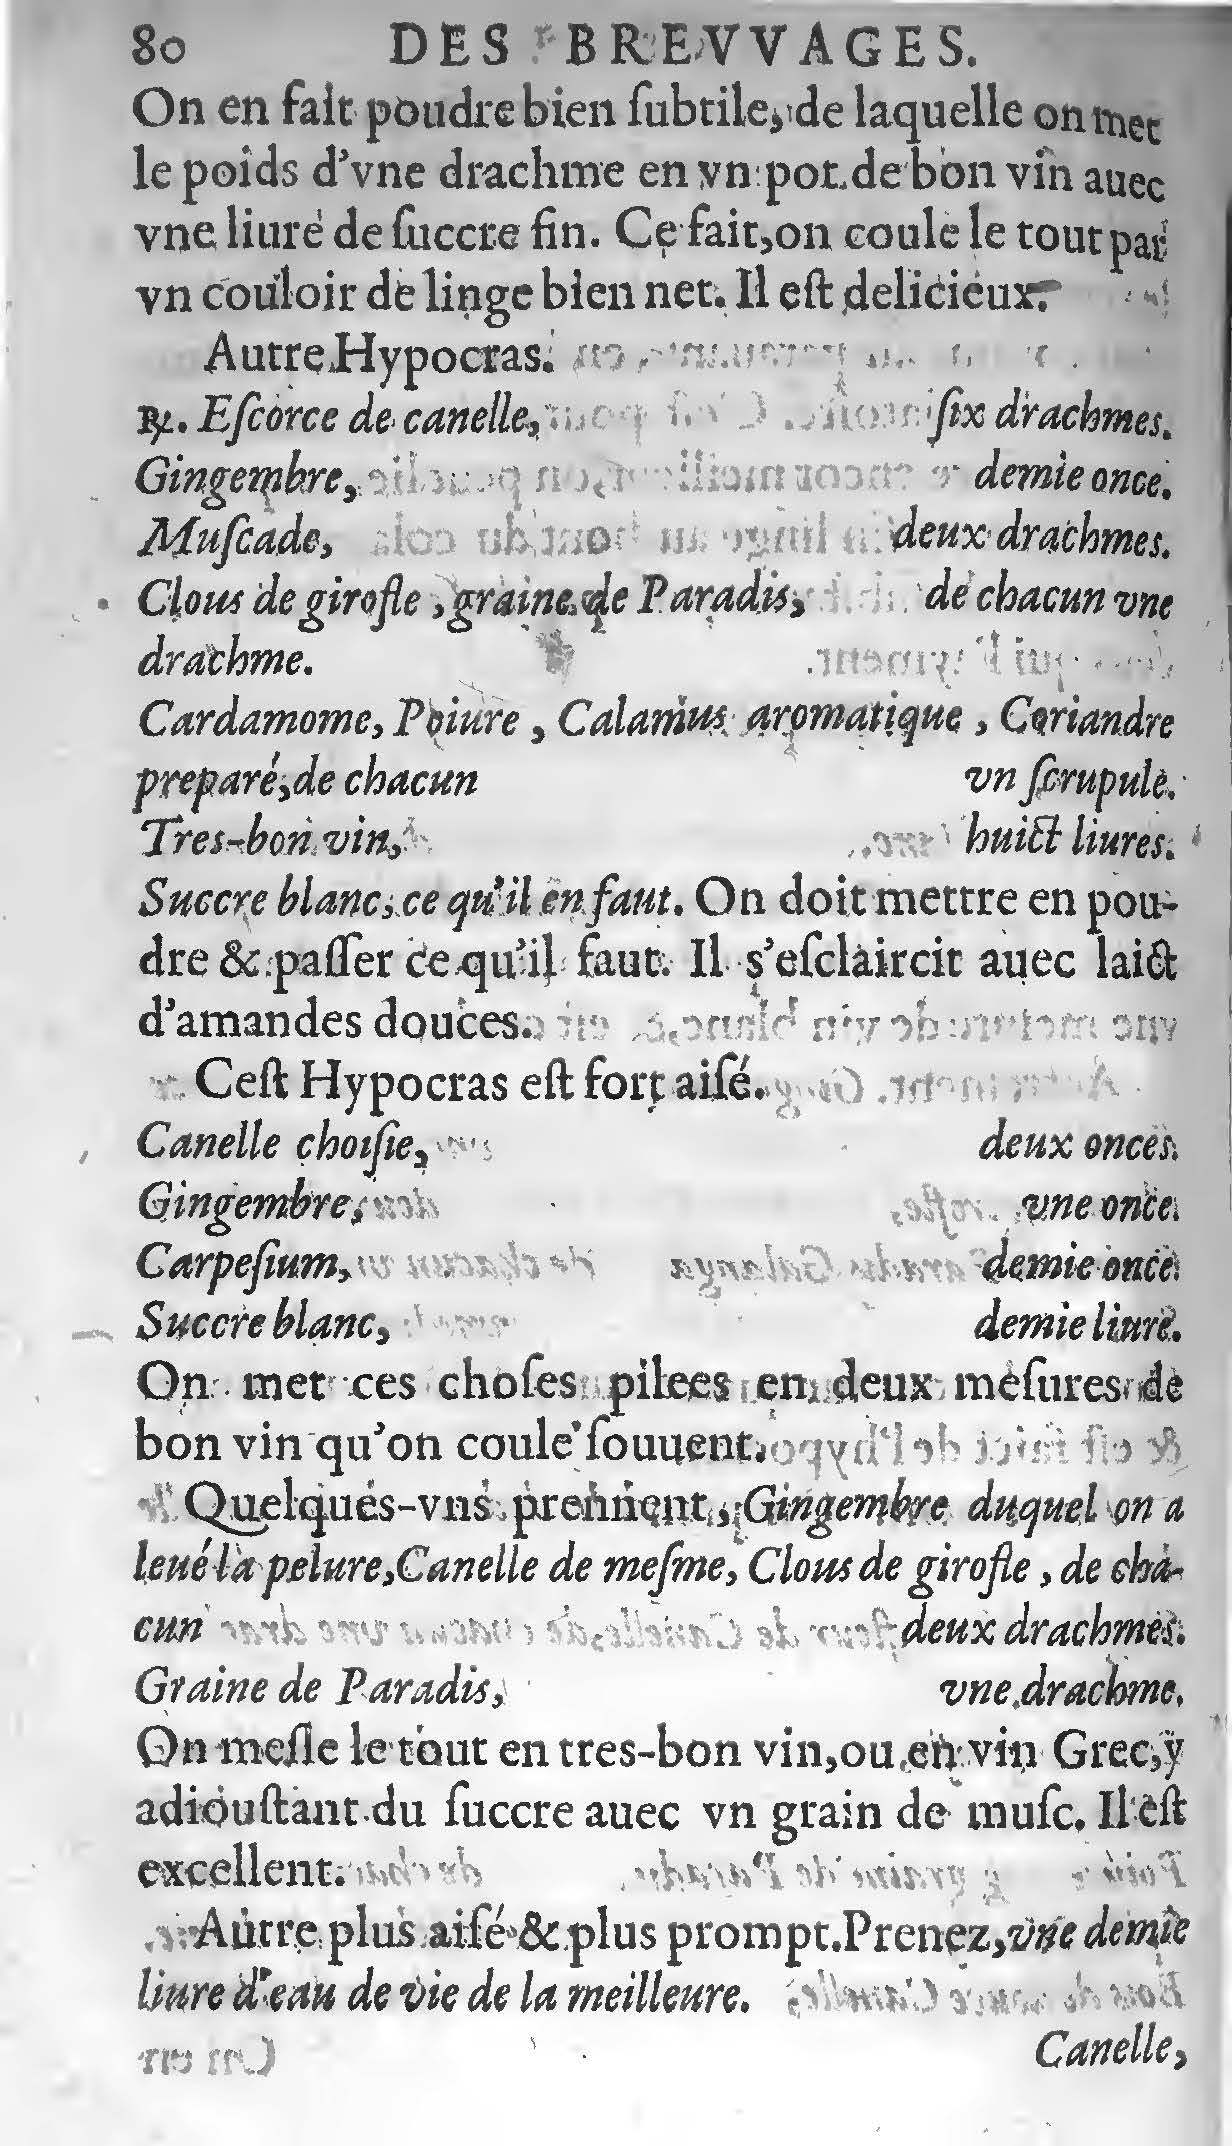 80 DES BREVVAGES.
On en fait poudre bien ſubtile, de laquelle on met
le poids d'vne drachme en vn pot de bon vin auec
vne liure de ſuccre fin. Ce fait, on coule le tout par
vn couloir de linge bien net. Il eſt delicieux.
Autre Hypocras.
℞. Eſcorce de canelle, ſix drachmes.
Gingembre, demie once.
Muſcade, deux drachmes.
Clous de girofle, graine de Paradis, de chacun vne
drachme.
Cardamome, Poiure, Calamus aromatique, Coriandre
preparé, de chacun vn ſcrupule.
Tres-bon vin, huict liures.
Succre blanc, ce qu'il en faut. On doit mettre en pou-
dre & paſſer ce qu'il faut. Il s'eſclaircit auec laict
d'amandes douces.
Ceſt Hypocras eſt fort aiſé.
Canelle choiſie, deux onces.
Gingembre, vne once.
Carpeſium, demie once.
Succre blanc, demie liure.
On met ces choſes pilees en deux meſures de
bon vin qu'on coule ſouuent.
Quelques-vns prennent, Gingembre duquel on a
leué la pelure, Canelle de meſme, Clous de girofle, de cha-
cun deux drachmes.
Graine de Paradis, vne drachme.
On meſle le tout en tres-bon vin, ou en vin Grec, y
adiouſtant du ſuccre auec vn grain de muſc. Il eſt
excellent.
Autre plus aiſé & plus prompt. Prenez, vne demie
liure d'eau de vie de la meilleure.
Canelle,